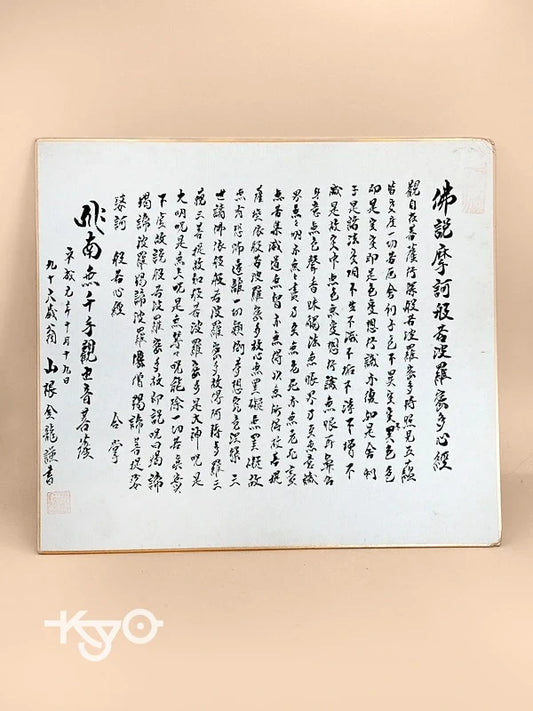 佛説摩訶般若波羅蜜多心經
觀自在菩薩行深般若波羅蜜多時照見五蘊
皆空度一切苦厄舎利子色不異空空不異色色
即是空空即是色受想行識亦復如是舎利
子是諸法空相不生不滅不垢不浄不増不
減是故空中無色無受想行識無眼耳鼻舌
身意無色聲香味觸法無眼界乃至無意識
界無無明亦無無明盡乃至無老死亦無老死盡
無苦集滅道無智亦無得以無所得故菩提
薩埵依般若波羅蜜多故心無罣礙無罣礙故
無有恐怖遠離一切顛倒夢想究竟涅槃三
世諸佛依般若波羅蜜多故得阿耨多羅三
藐三菩提故知般若波羅蜜多是大神呪是
大明呪是無上呪是無等等呪能除一切苦真實
不虚故説般若波羅蜜多呪即説呪曰羯諦
羯諦波羅羯諦波羅僧羯諦菩提娑
婆訶 般若心經 合掌
南無千手觀世音菩薩
平成元年十月十九日
九十六歳翁 山根金龍謹書
KYO